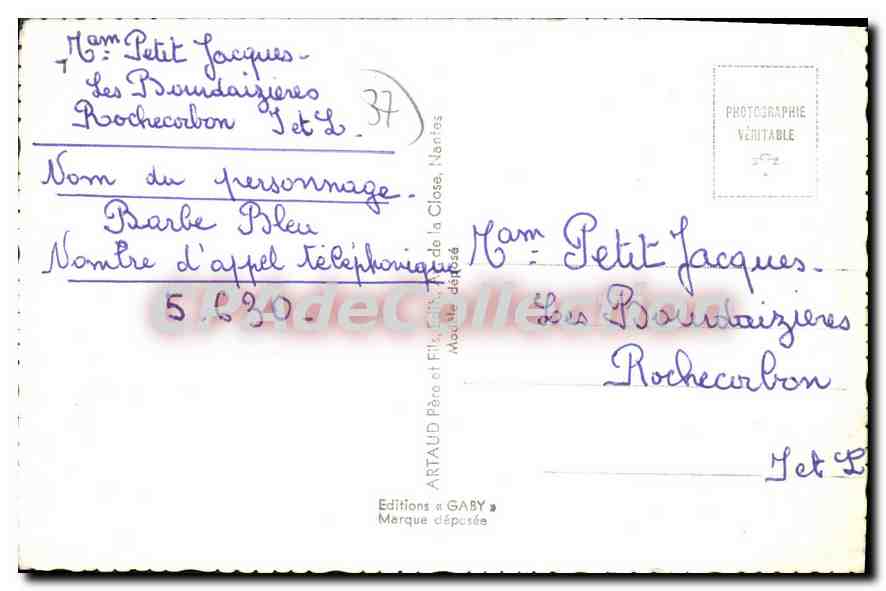 Mam Petit Jacques-
Les Bourdaizières
Rochecorbon I et L.
37
Nom du personnage.
Barbe Bleu
Nombre d'appel téléphonique
5.630.
CPAdeCollection
ARTAUD Père et Fils, Edit., de la Close, Nantes
Modèle déposé
Editions « GABY »
Marque déposée
PHOTOGRAPHIE
VÉRITABLE
Mam Petit Jacques.
Les Bourdaizières
Rochecorbon
I et L